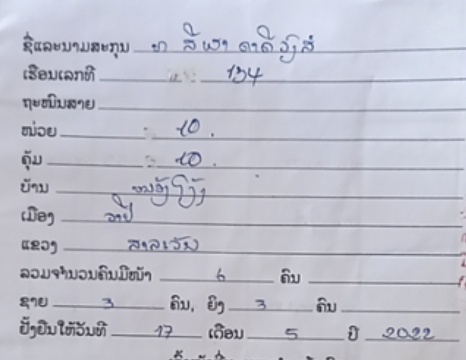 ຊື່ແລະນາມສະກຸນ
ເຮືອນເລກທີ 134
ຖະໜົນສາຍ
ໜ່ວຍ 10.
ຄຸ້ມ 10.
ບ້ານ
ເມືອງ ວາປີ
ແຂວງ ສາລະວັນ
ລວມຈຳນວນຄົນມີໜ້າ 6 ຄົນ
ຊາຍ 3 ຄົນ, ຍິງ 3 ຄົນ
ຢັ້ງຢືນໃຫ້ວັນທີ 17 ເດືອນ 5 ປີ 2022